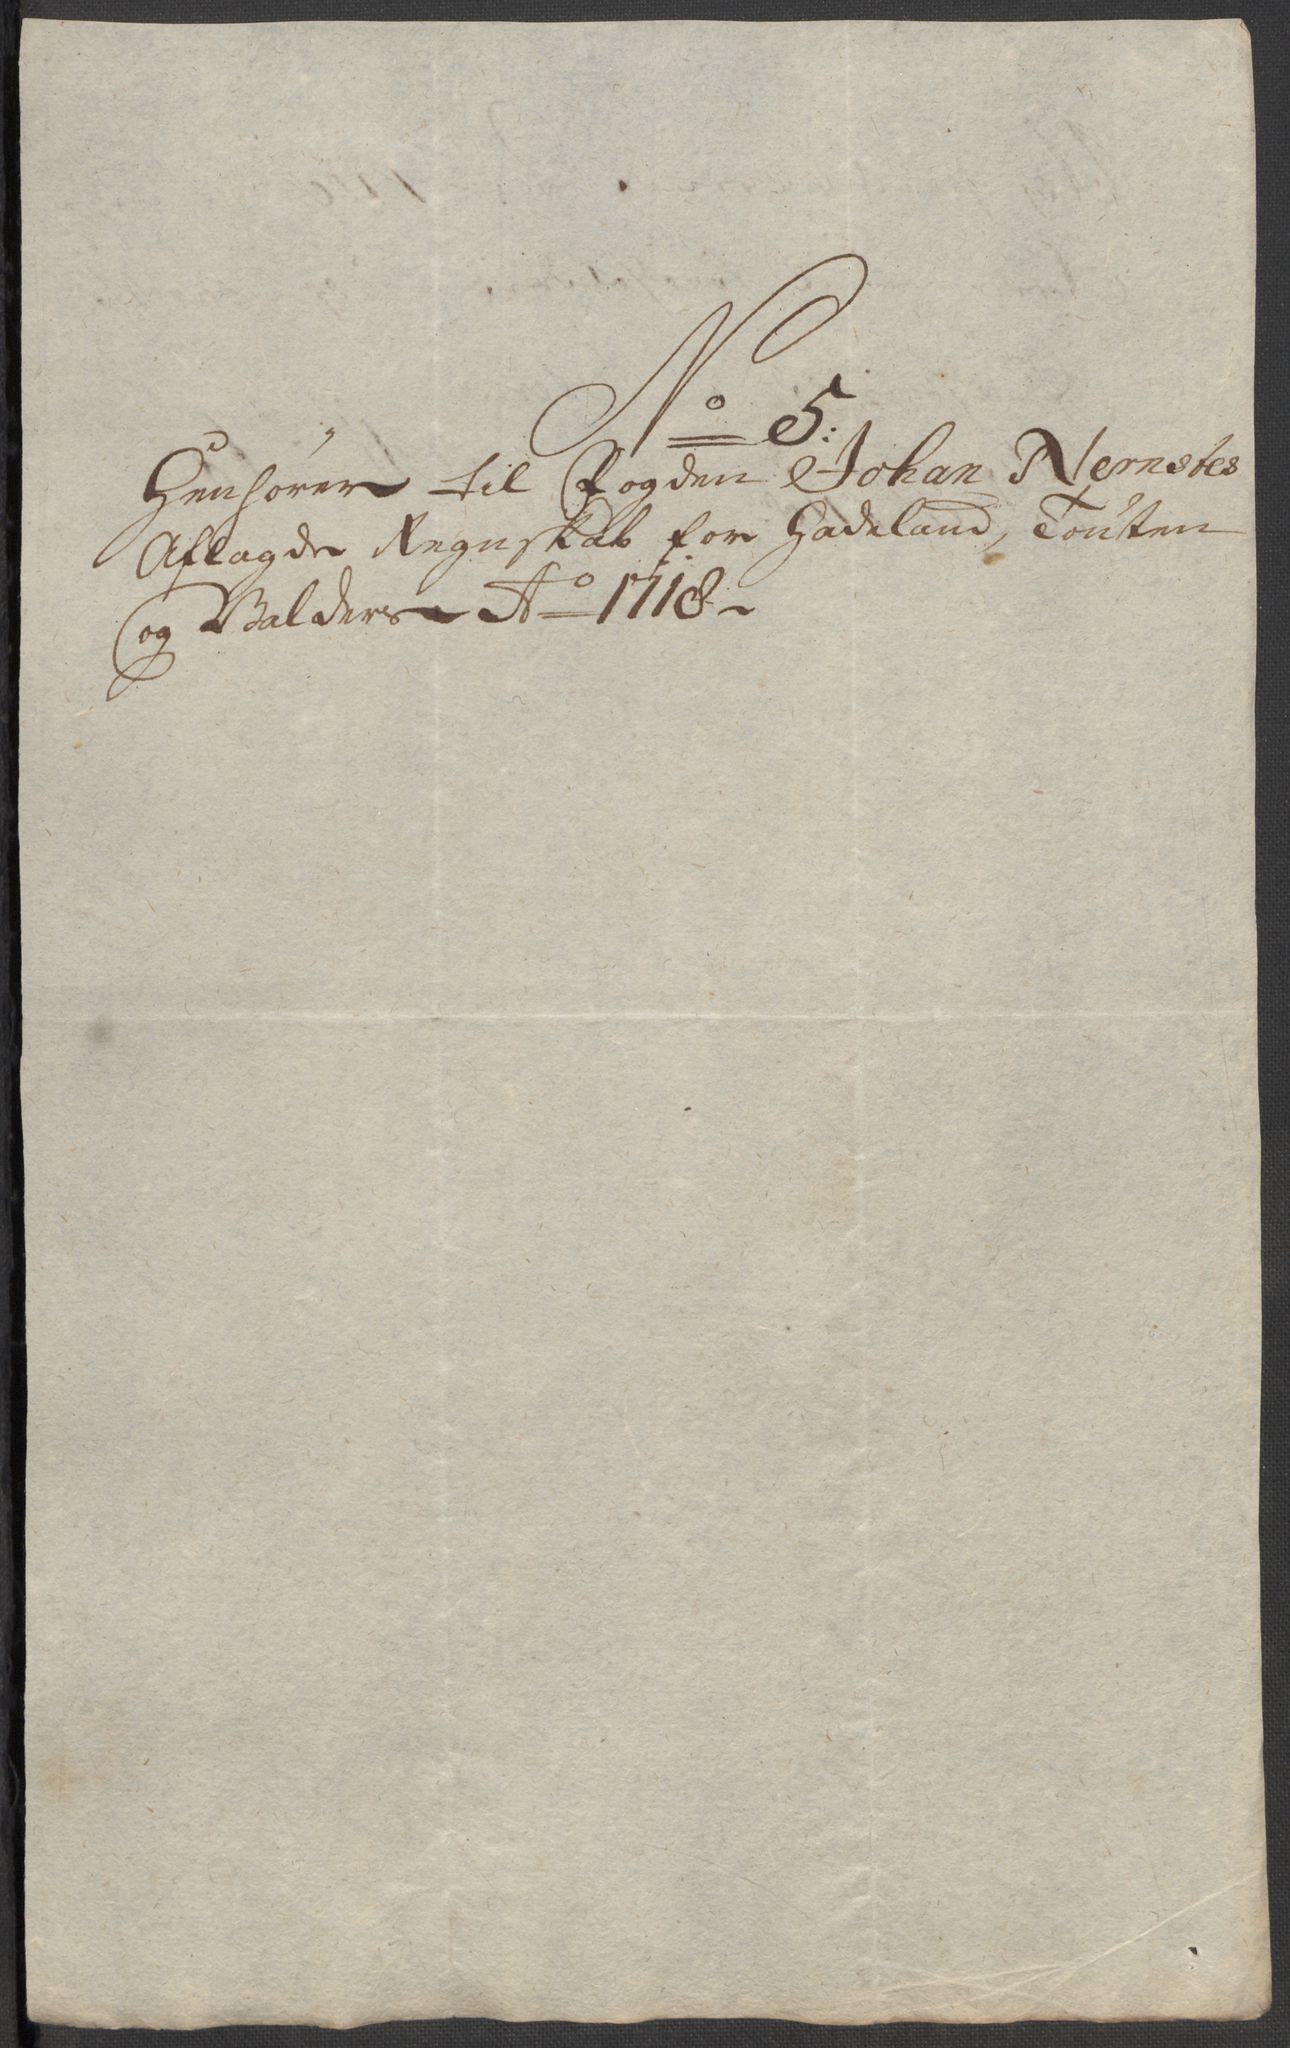 No 5:
Henhører til Fogden Johan Nernstes
Aflagde Regnskab for Hadeland, Tousten
og Valders Ao 1718